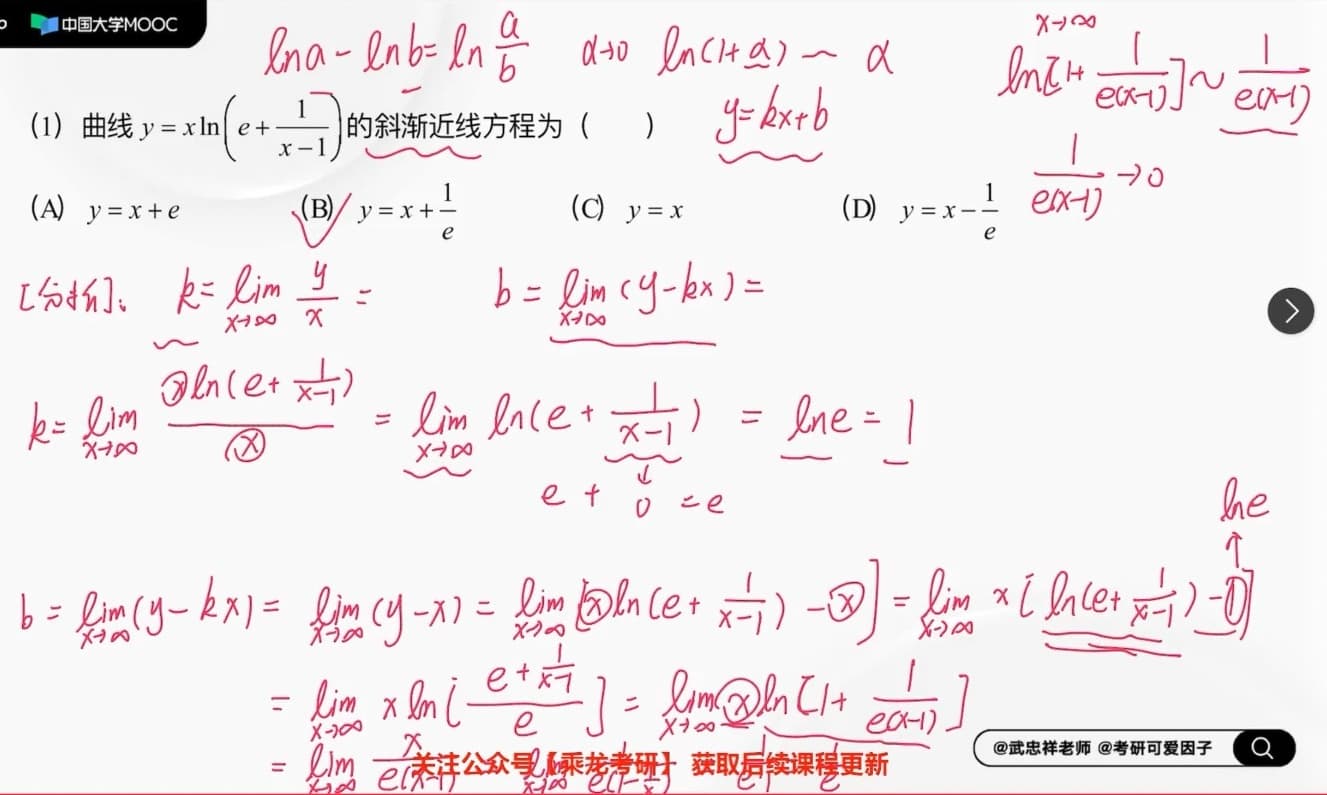 中国大学MOOC
lna - lnb = ln a/b   α→0   ln(1+α) ~ α
x→∞
ln[1+ 1/e(x-1)] ~ 1/e(x-1)
(1) 曲线 y = x ln(e + 1/(x-1)) 的斜渐近线方程为 ( )
y=kx+b
1/e(x-1) →0
(A) y = x + e   (B) y = x + 1/e   (C) y = x   (D) y = x - 1/e
[分析]: k = lim x→∞ y/x =   b = lim x→∞ (y-kx) =
k = lim x→∞ xln(e+ 1/(x-1))/x = lim x→∞ ln(e + 1/(x-1)) = lne = 1
e + 0 = e
lne
b = lim x→∞ (y-kx) = lim x→∞ (y-x) = lim x→∞ [xln(e+ 1/(x-1)) - x] = lim x→∞ x[ln(e+ 1/(x-1)) - 1]
= lim x→∞ x ln[(e + 1/(x-1))/e] = lim x→∞ x ln[1+ 1/e(x-1)]
= lim x→∞ x/e(x-1)
关注公众号【乘龙考研】 获取后续课程更新
@武忠祥老师 @考研可爱因子